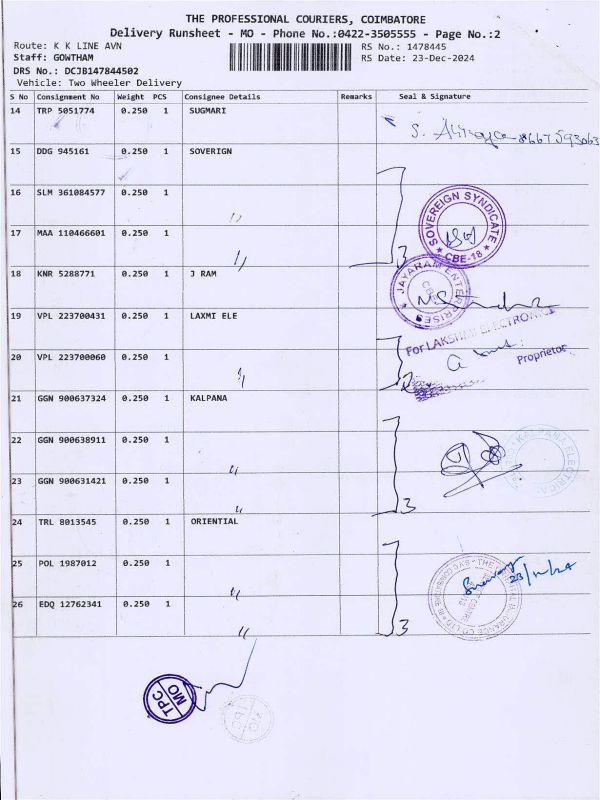 THE PROFESSIONAL COURIERS, COIMBATORE
Delivery Runsheet - MO - Phone No.:0422-3505555 - Page No.:2
Route: K K LINE AVN
RS No.: 1478445
Staff: GOWTHAM
RS Date: 23-Dec-2024
DRS No.: DCJB147844502
Vehicle: Two Wheeler Delivery
S No Consignment No Weight PCS Consignee Details Remarks Seal & Signature
14 TRP 5051774 0.250 1 SUGMARI
S.
15 DDG 945161 0.250 1 SOVERIGN
16 SLM 361084577 0.250 1 〃
SOVEREIGN SYNDICATE
★ CBE-18 ★
17 MAA 110466601 0.250 1 〃 3
18 KNR 5288771 0.250 1 J RAM
JAYARAM ENTERPRISES
CBE
19 VPL 223700431 0.250 1 LAXMI ELE
For LAKSHMI ELECTRONICS
20 VPL 223700060 0.250 1 〃 2
Proprietor
21 GGN 900637324 0.250 1 KALPANA
22 GGN 900638911 0.250 1 〃
KALPANA ELECTRICAL
23 GGN 900631421 0.250 1 〃 3
24 TRL 8013545 0.250 1 ORIENTIAL
25 POL 1987012 0.250 1 〃
23/12/24
26 EDQ 12762341 0.250 1 〃 3
TPC
MO
TPC
MO